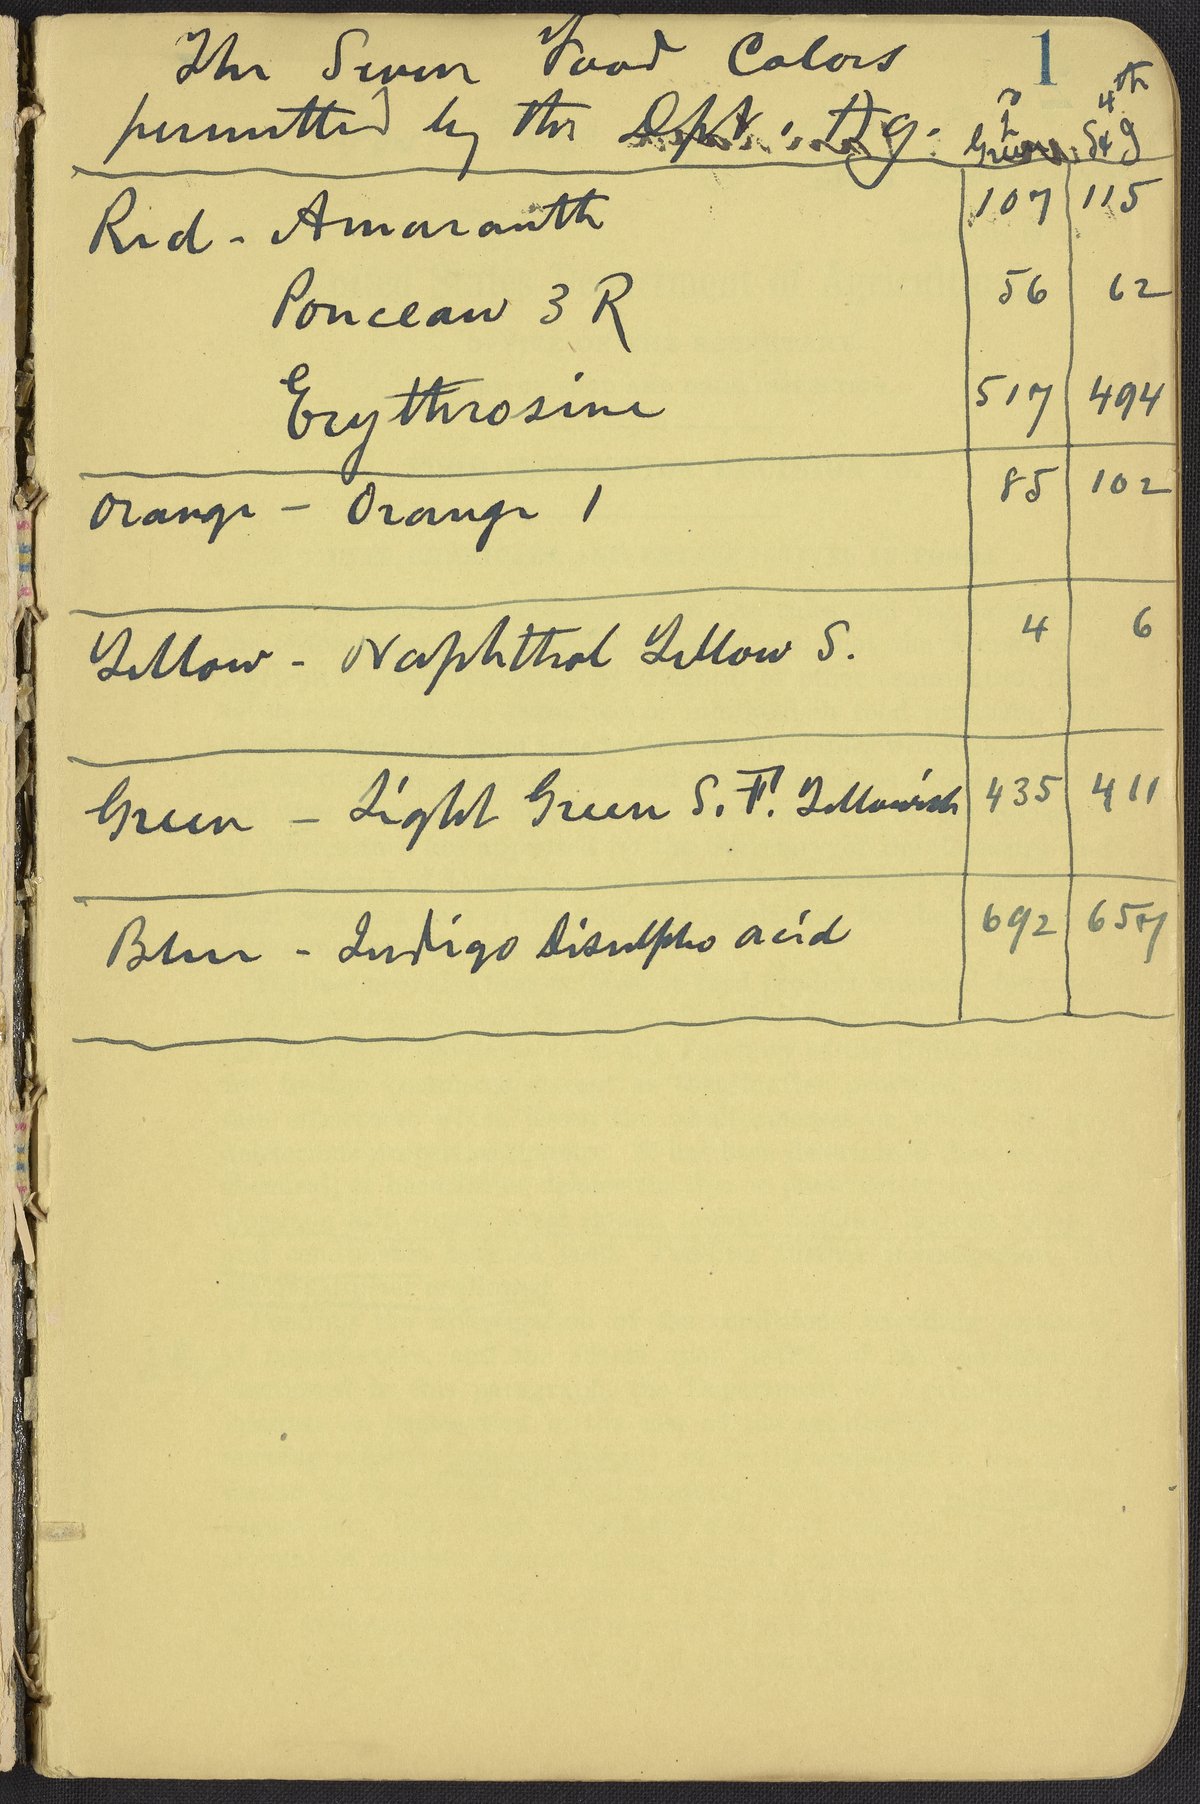 1
The Seven Food Colors
permitted by the Dept. Ag.
Green 4th
S & J
Red - Amaranth 107 115
Ponceau 3 R 56 62
Erythrosine 517 494
Orange - Orange 1 85 102
Yellow - Naphthol Yellow S. 4 6
Green - Light Green S. F. Yellowish 435 411
Blue - Indigo Disulpho acid 692 657